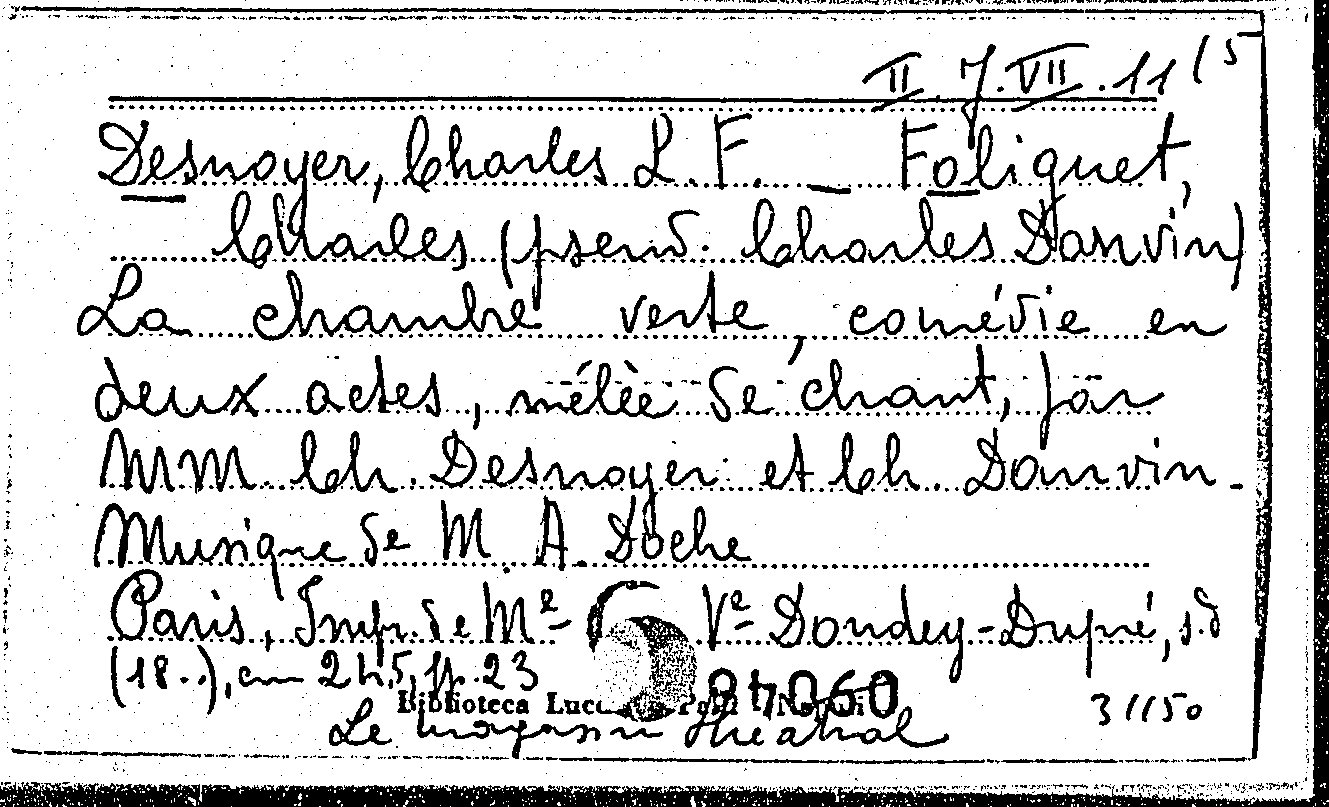 II. 7. VII. 11 / 5
Desnoyer, Charles L. F. — Foliguet,
Charles (pseud. Charles Danvin)
La chambre verte, comédie en
deux actes, mêlée de chant, par
MM. Ch. Desnoyer et Ch. Danvin.
Musique de M. A. Doche
Paris, Impr. de Me Ve Dondey-Dupré, s.d
(18..), cm 24,5, pp. 23
Biblioteca
09048
31150
Le magasin théatral